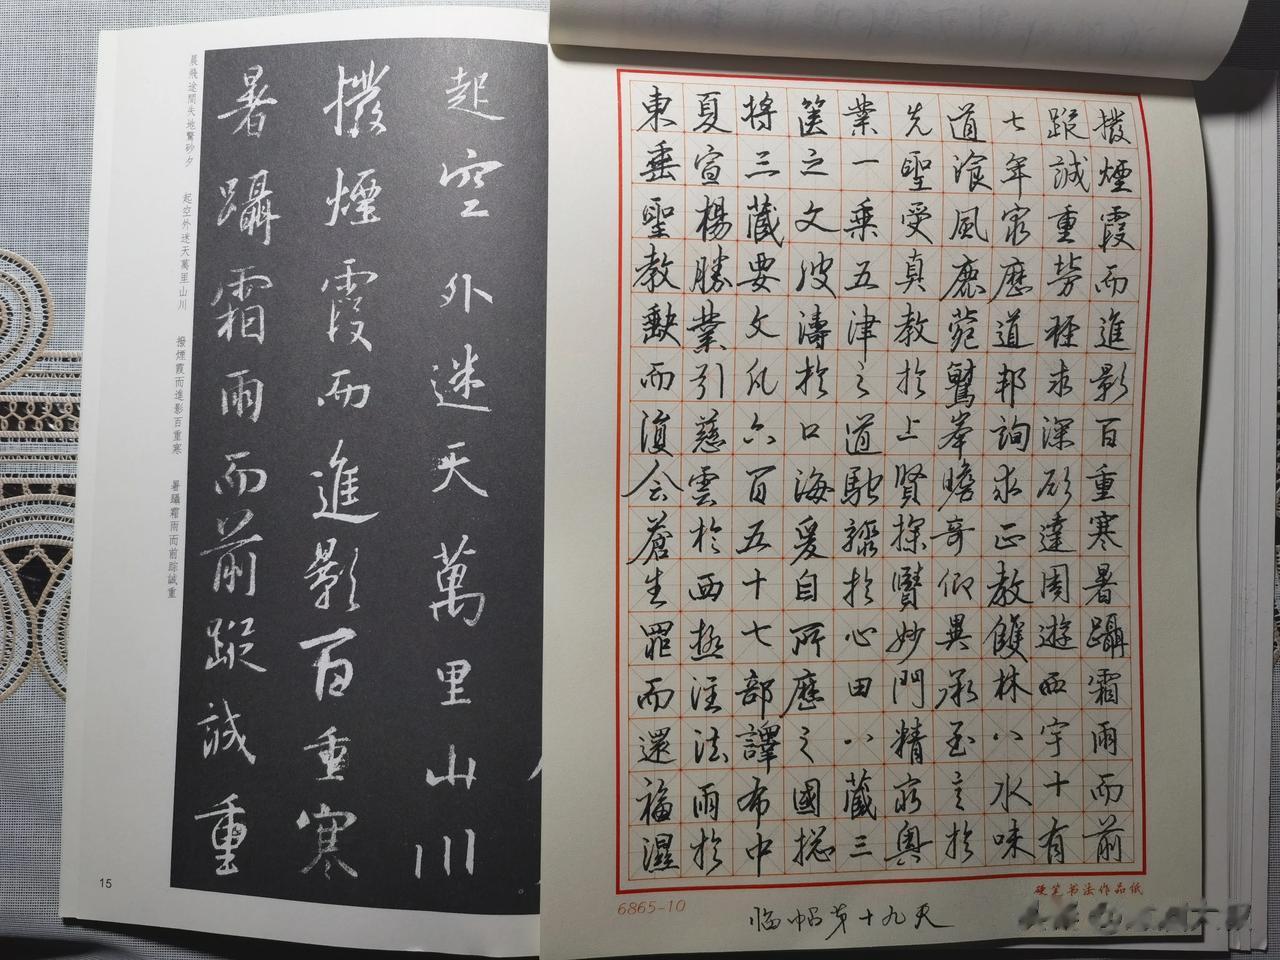 起空外迷天萬里山川
撥煙霞而進影百重寒
暑躡霜雨而前蹤誠重
晨飛途間失地驚砂夕
起空外迷天萬里山川
撥煙霞而進影百重寒
暑躡霜雨而前踪誠重
15
撥煙霞而進影百重寒暑躡霜雨而前
蹤誠重勞輕求深願達周遊西宇十有
七年窮歷道邦詢求正教雙林八水味
道湌風鹿菀鷲峯瞻奇仰異承至言於
先聖受真教於上賢探賾妙門精窮奧
業一乘五律之道馳驟於心田八藏三
篋之文波濤於口海爰自所歷之國揔
將三藏要文凡六百五十七部譯布中
夏宣楊勝業引慈雲於西極注法雨於
東垂聖教缺而復全蒼生罪而還福濕
硬笔书法作品纸
6865-10
临帖第十九天